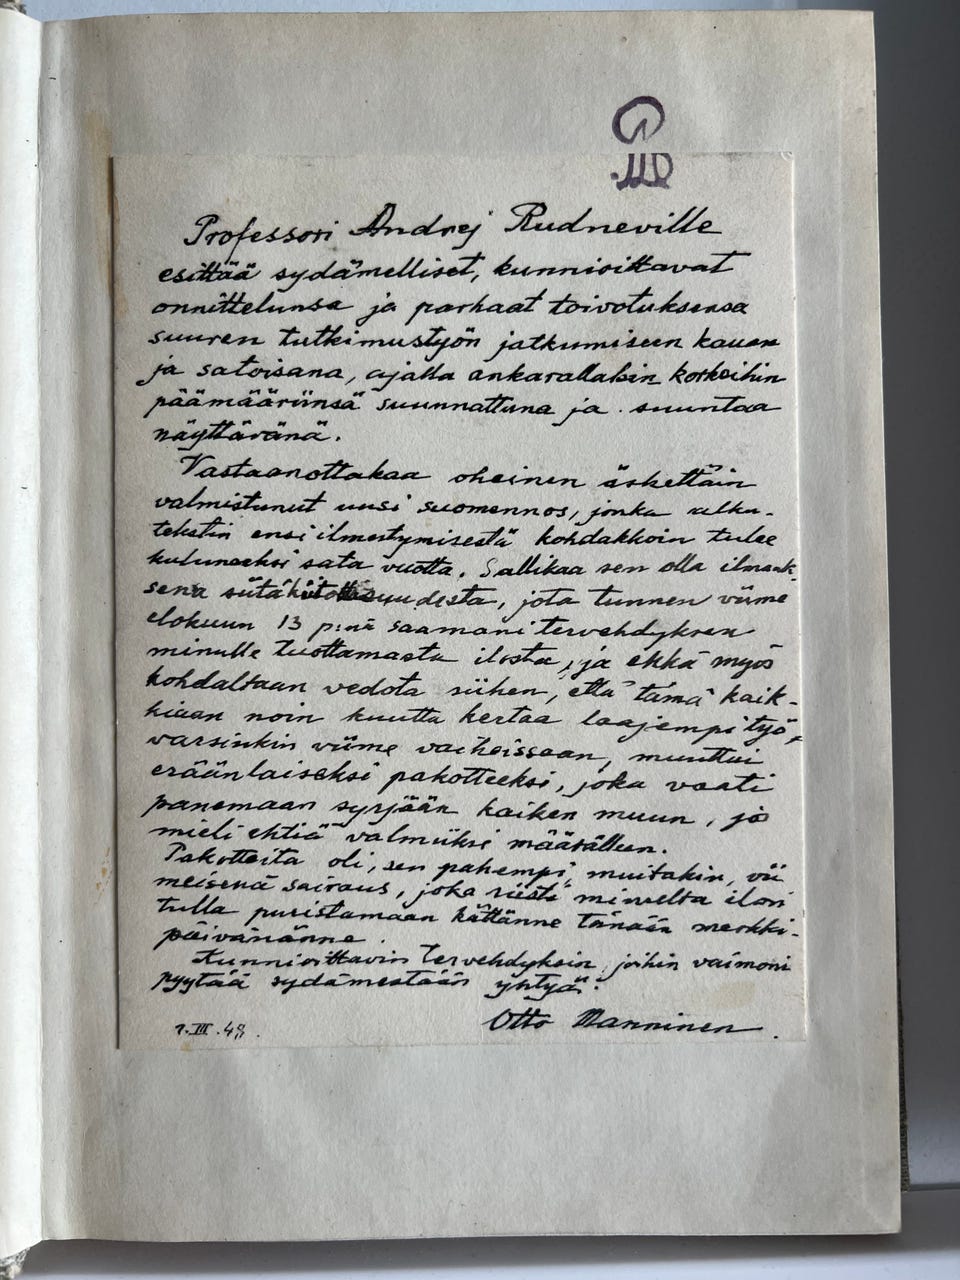 Professori Andrej Rudneville
esittää sydämelliset, kunnioittavat
onnittelunsa ja parhaat toivotuksensa
suuren tutkimustyön jatkumiseen kauan
ja satoisana, ajalla ankarallakin korkeihin
päämääriinsä suunnattuna ja suuntaa
näyttävänä.
Vastaanottakaa oheinen äskettäin
valmistunut uusi suomennos, jonka alku-
tekstin ensi ilmestymisestä kohdakkoin tulee
kuluneeksi sata vuotta. Sallikaa sen olla ilmauk-
sena siitä kiitollisuudesta, jota tunnen viime
elokuun 13 p:nä saamani tervehdyksen
minulle tuottamasta ilosta, ja ehkä myös
kohdaltaan vedota siihen, että tämä kaik-
kiaan noin kuutta kertaa laajempi työ,
varsinkin viime vaiheissaan, muuttui
eräänlaiseksi pakotteeksi, joka vaati
panemaan syrjään kaiken muun, jos
mieli ehtiä valmiiksi määrälleen.
Pakotteita oli, sen pahempi, muitakin, vii
meisenä sairaus, joka riisti minulta ilon
tulla puristamaan kättänne tänään merkki-
päivänänne.
Kunnioittavin tervehdyksin, joihin vaimoni
pyytää sydämestään yhtyä:
Otto Manninen.
1.III.48.